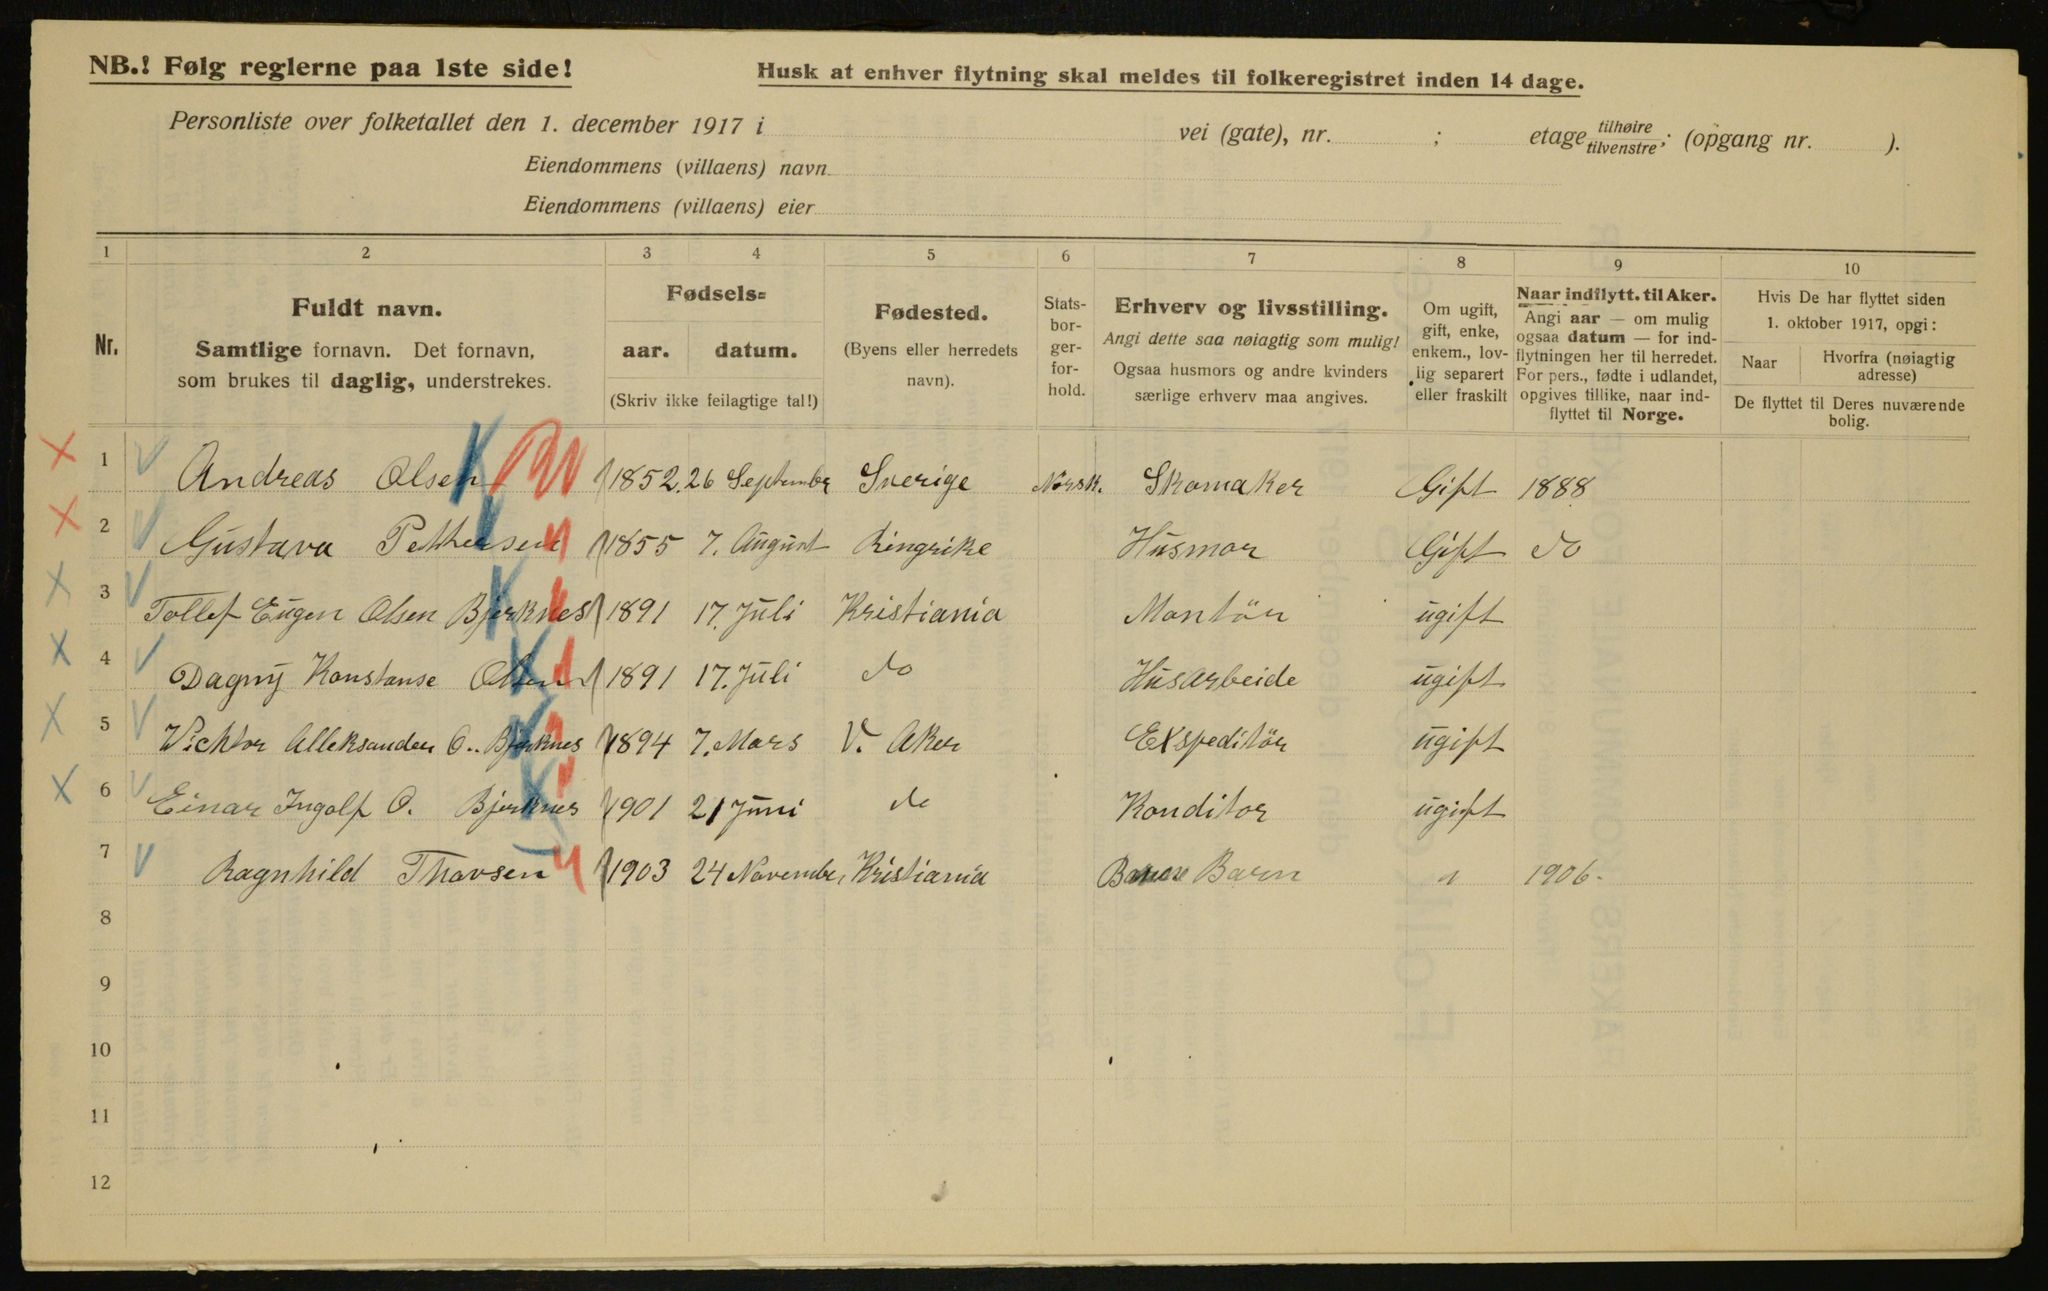 NB.! Følg reglerne paa 1ste side!
Husk at enhver flytning skal meldes til folkeregistret inden 14 dage.
Personliste over folketallet den 1. december 1917 i vei (gate), nr. ; etage tilhøire tilvenstre; (opgang nr. ).
Eiendommens (villaens) navn
Eiendommens (villaens) eier
1 2 3 4 5 6 7 8 9 10
Nr.
Fuldt navn.
Samtlige fornavn. Det fornavn,
som brukes til daglig, understrekes.
Fødsels=
aar. datum.
(Skriv ikke feilagtige tal!)
Fødested.
(Byens eller herredets
navn).
Stats-
bor-
ger-
for-
hold.
Erhverv og livsstilling.
Angi dette saa nøiagtig som mulig!
Ogsaa husmors og andre kvinders
særlige erhverv maa angives.
Om ugift,
gift, enke,
enkem., lov-
lig separert
eller fraskilt
Naar indflytt. til Aker.
Angi aar — om mulig
ogsaa datum — for ind-
flytningen her til herredet.
For pers., fødte i udlandet,
opgives tillike, naar ind-
flyttet til Norge.
Hvis De har flyttet siden
1. oktober 1917, opgi:
Naar
Hvorfra (nøiagtig
adresse)
De flyttet til Deres nuværende
bolig.
1 Andreas Olsen 1852 26 September Sverige Norsk. Skomaker Gift 1888
2 Gustava Petthersen 1855 7. August Ringrike Husmor Gift do
3 Tollef Eugen Olsen Bjerknes 1891 17. Juli Kristiania Montör ugift
4 Dagny Konstanse Olsen 1891 17. Juli do Husarbeide ugift
5 Vicktor Alleksander O. Bjerknes 1894 7. Mars V. Aker Exspeditör ugift
6 Einar Ingolf O. Bjerknes 1901 21 Juni do Konditor ugift
7 Ragnhild Thorsen 1903 24 November Kristiania Barn 1906.
8
9
10
11
12